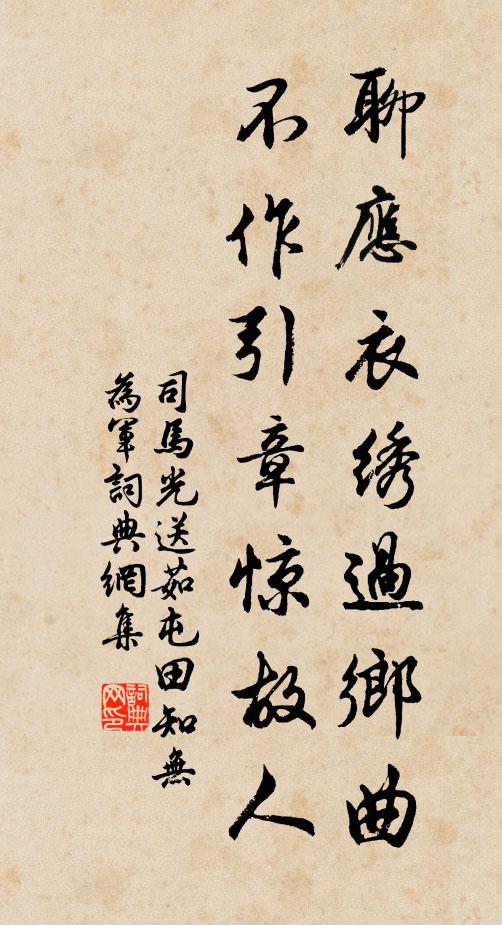 聊應衣绣過鄉曲
不作引章惊故人
司馬光送茹屯田知無
為軍詞典網集
詞典
网印